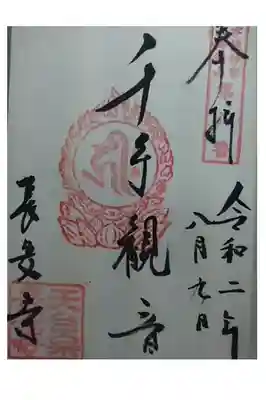 奉拝
令和二年
八月九日
千手觀音
長安寺